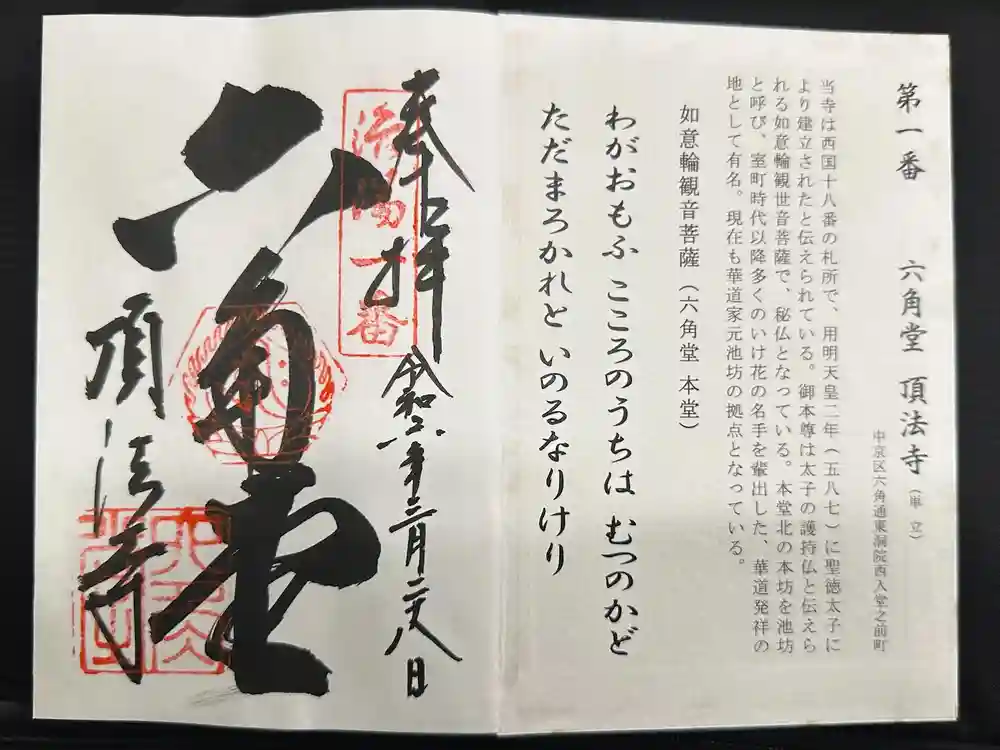 第一番 六角堂 頂法寺（単立）
中京区六角通東洞院西入堂之前町
当寺は西国十八番の札所で、用明天皇二年（五八七）に聖徳太子に
より建立されたと伝えられている。御本尊は太子の護持仏と伝えら
れる如意輪観世音菩薩で、秘仏となっている。本堂北の本坊を池坊
と呼び、室町時代以降多くのいけ花の名手を輩出した、華道発祥の
地として有名。現在も華道家元池坊の拠点となっている。
如意輪観音菩薩（六角堂 本堂）
わがおもふ こころのうちは むつのかど
ただまろかれと いのるなりけり
奉拝 令和六年三月二八日
洛陽一番
六角堂
頂法寺